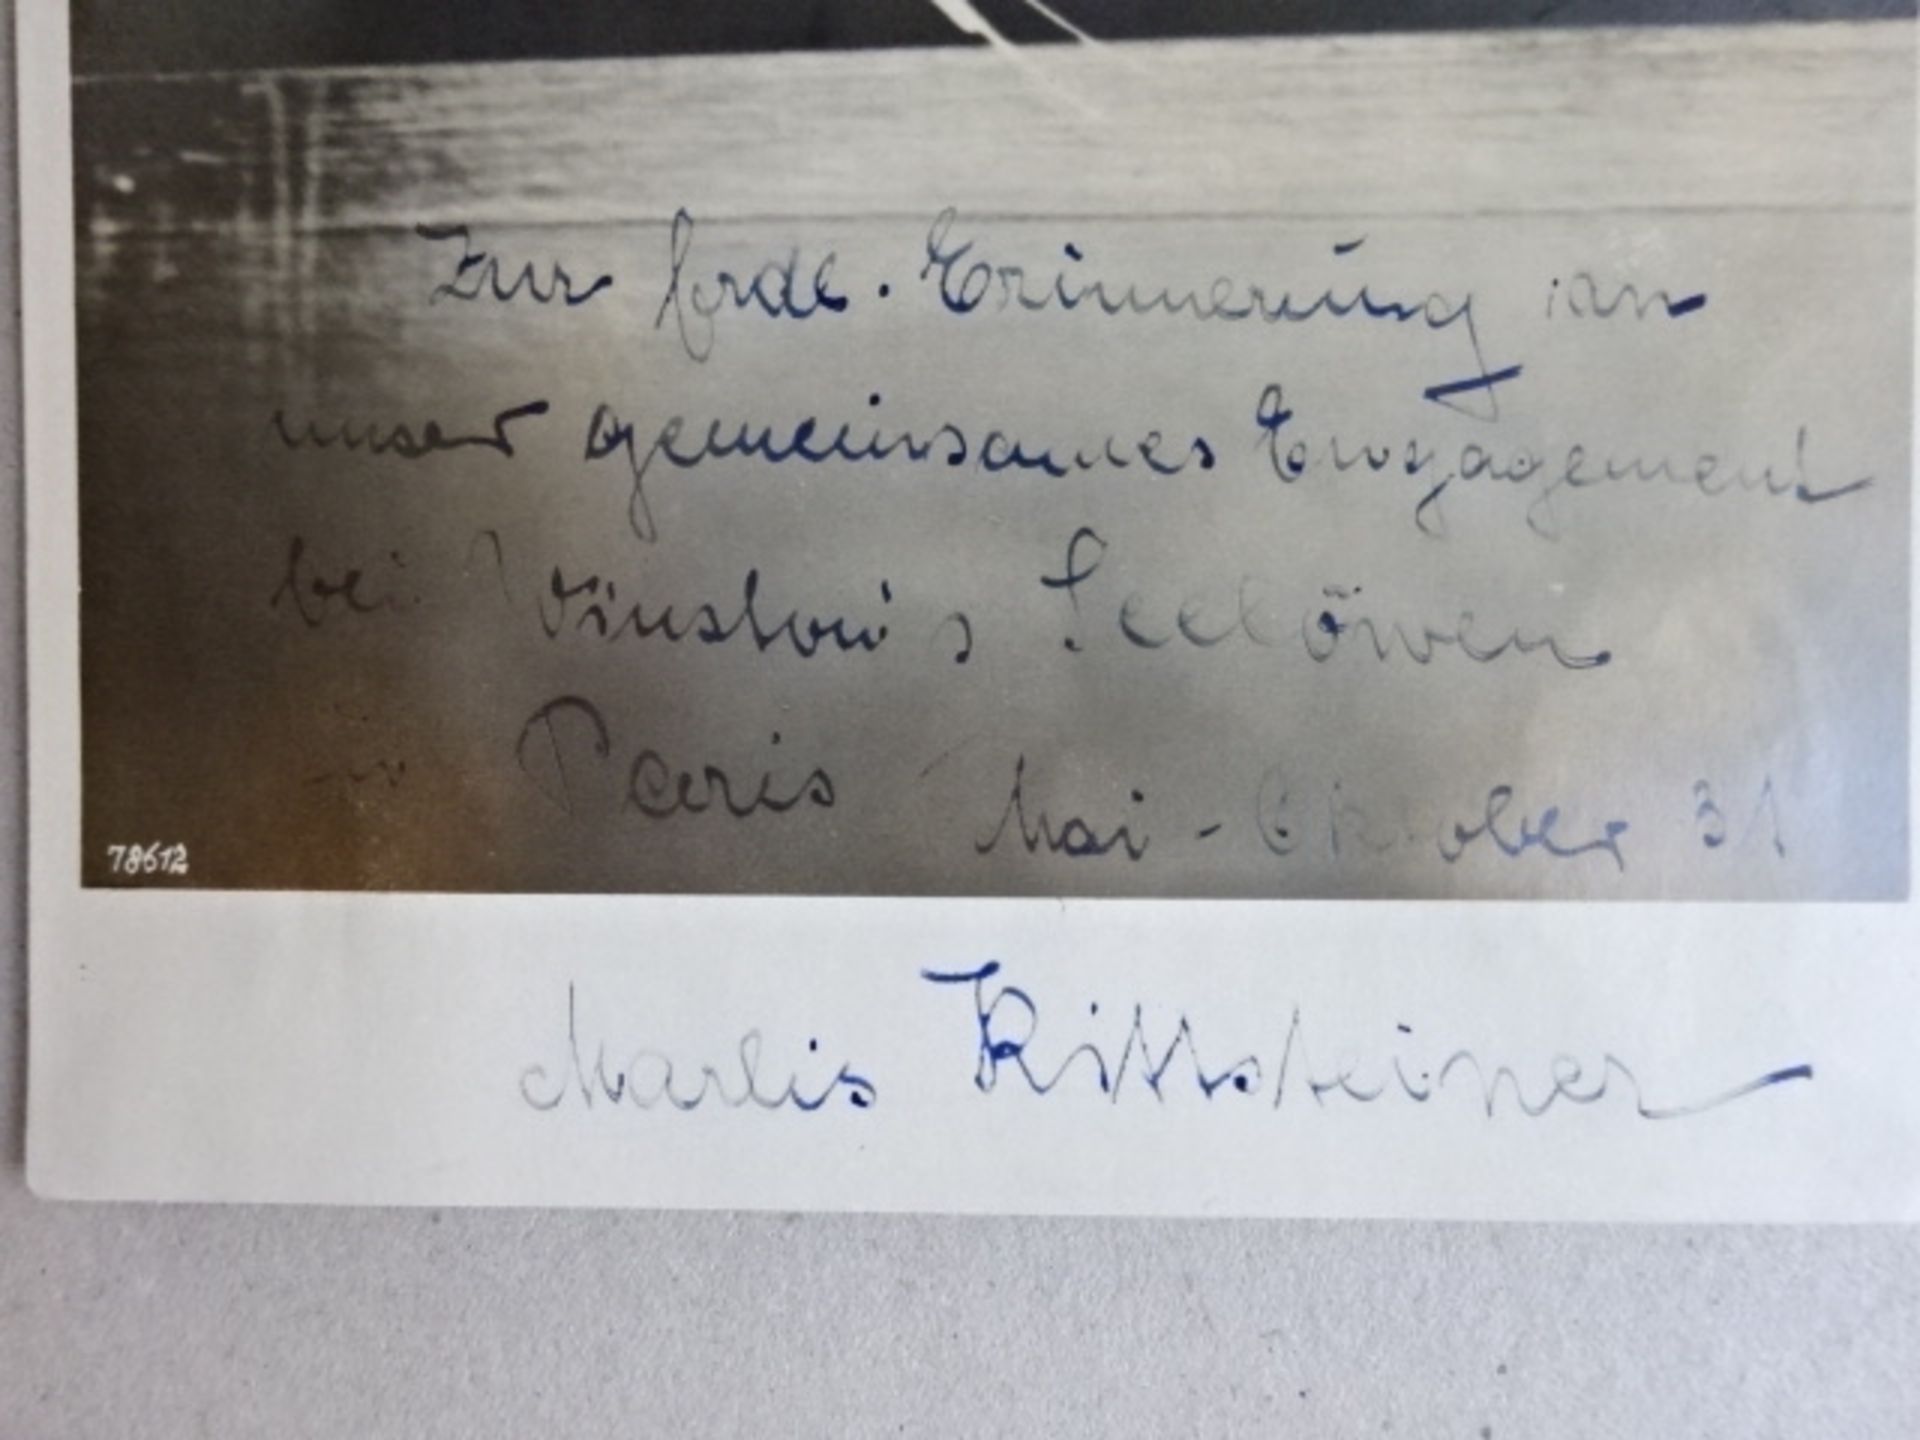 Zur frdl. Erinnerung an
unser gemeinsames Engagement
bei Winston's Seelöwen
in Paris Mai - Oktober 31
78612
Marlis Rittsteiner